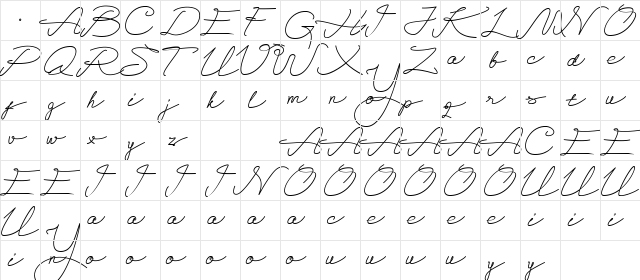 . A B C D E F G H I J K L M N O
P Q R S T U V W X Y Z a b c d e
f g h i j k l m n o p q r s t u
v w x y z A A A A A A C E E
E E I I I I N O O O O O O U U U
U Y a a a a a a c e e e e i i i
i n o o o o o o u u u u y y